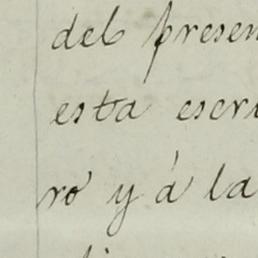 del presen
esta escri
ro y á la